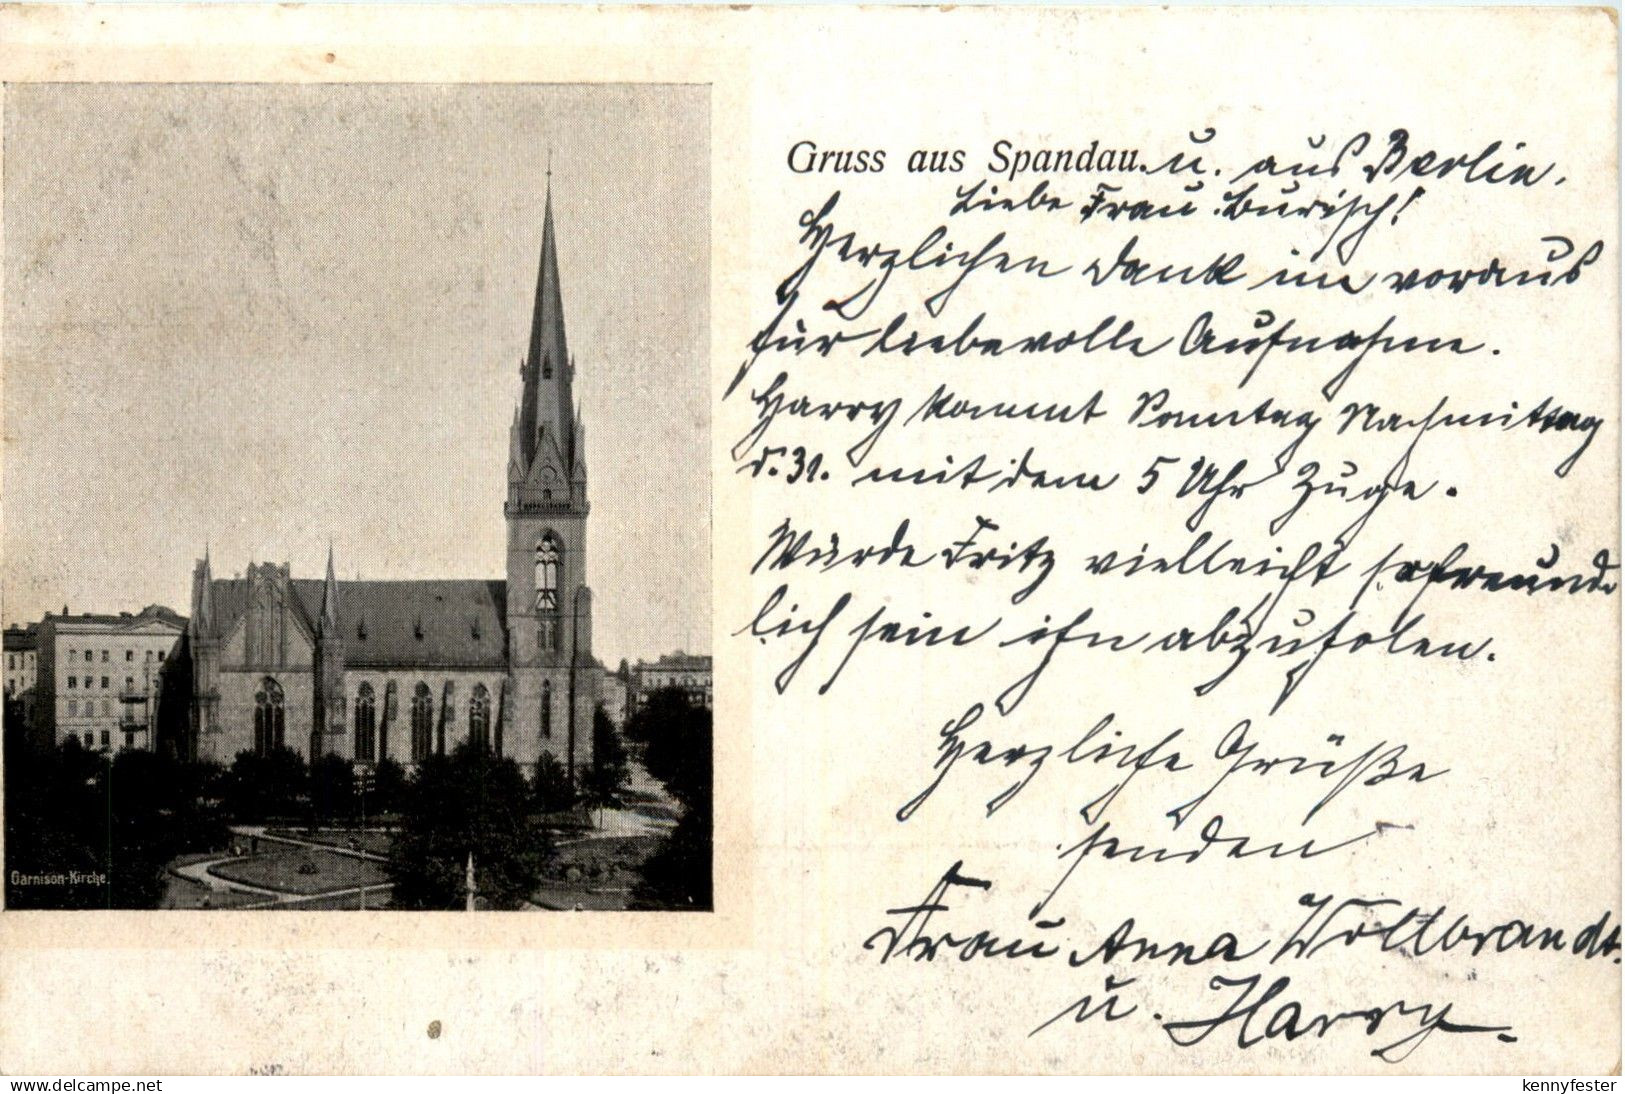 Gruss aus Spandau. u. aus Berlin.
Liebe Frau Burisch!
Herzlichen Dank im voraus
für liebevolle Aufnahme.
Harry kommt Sonntag Nachmittag
d. 31. mit dem 5 Uhr Zuge.
Würde Fritz vielleicht so freund-
lich sein ihn abzuholen.
Herzliche Grüße
senden
Frau Anna Woltbrandt
u. Harry.
Garnison-Kirche.
delcampe.net
kennyfester